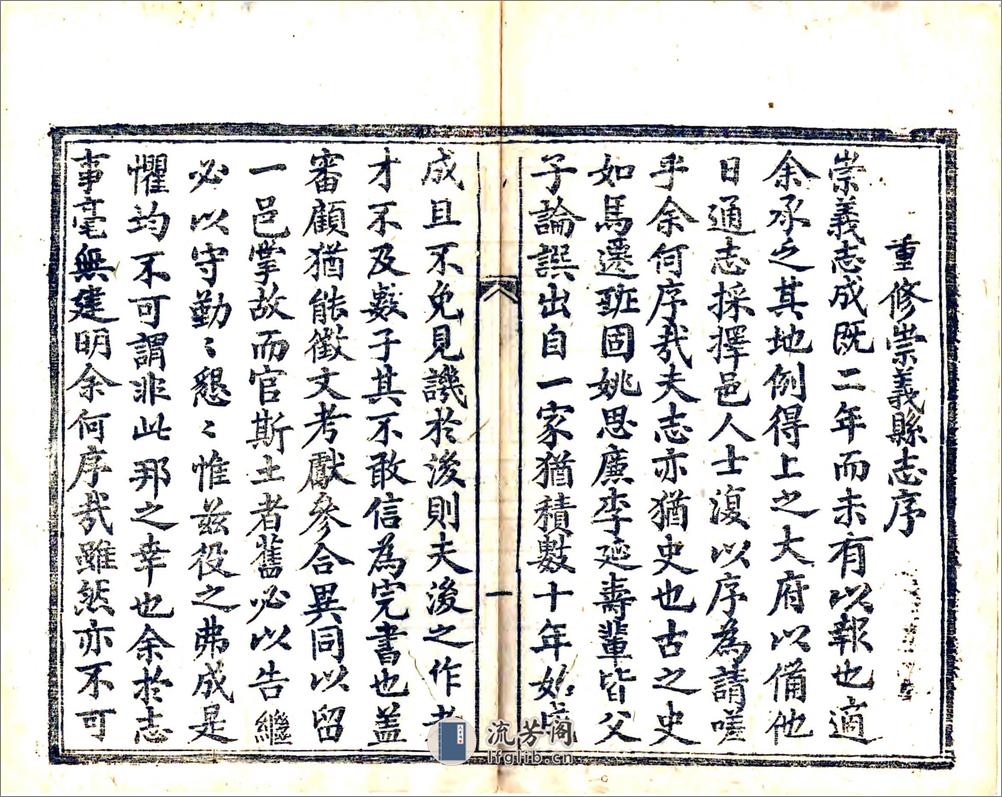 重修崇義縣志序
崇義志成既二年而未有以報也適
余承乏其地例得上之大府以備他
日通志採擇邑人士復以序為請嗟
乎余何序㢤夫志亦猶史也古之史
如馬遷班固姚思廉李延壽輩皆父
子論譔出自一家猶積數十年始
成且不免見譏於後則夫後之作者
才不及數子其不敢信為完書也蓋
審顧猶能徵文考獻參合異同以留
一邑掌故而官斯土者舊必以告繼
必以守勤〻懇〻惟茲役之弗成是
懼均不可謂非此邦之幸也余於志
事毫無建明余何序㢤雖然亦不可
一
流芳阁
lfglib.cn